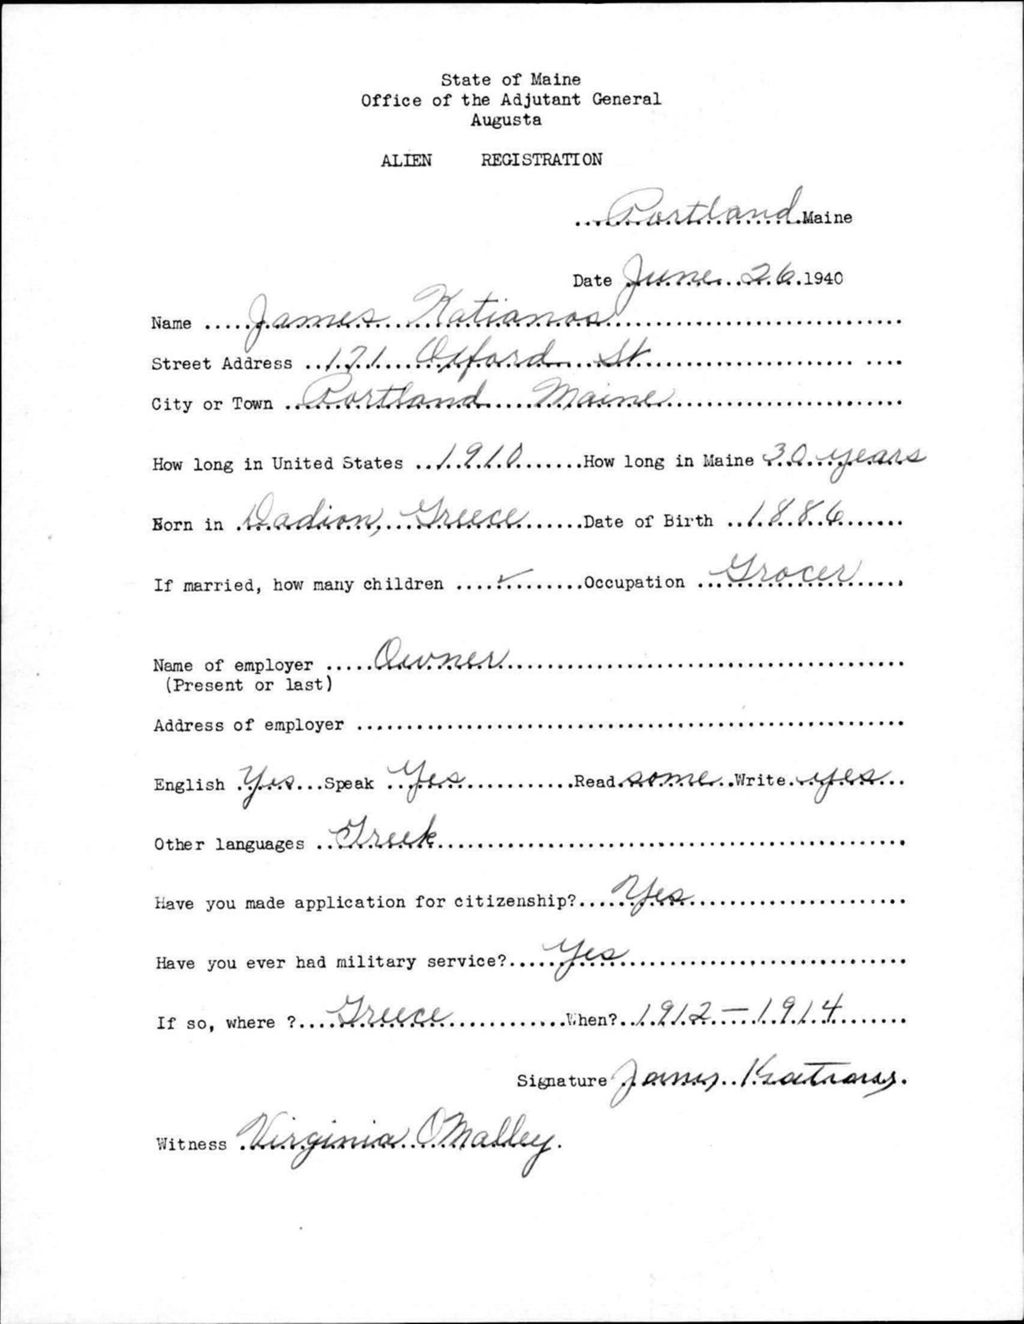 State of Maine
Office of the Adjutant General
Augusta
ALIEN REGISTRATION
Portland Maine
Date June 26 1940
Name James Katianos
Street Address 171 Oxford St
City or Town Portland Maine
How long in United States 1910 How long in Maine 30 years
Born in Dadion, Greece Date of Birth 1886
If married, how many children ✓ Occupation Grocer
Name of employer Owner
(Present or last)
Address of employer
English Yes Speak Yes Read some Write yes
Other languages Greek
Have you made application for citizenship? Yes
Have you ever had military service? Yes
If so, where ? Greece When? 1912 - 1914
Signature James
Witness Virginia O'Malley.